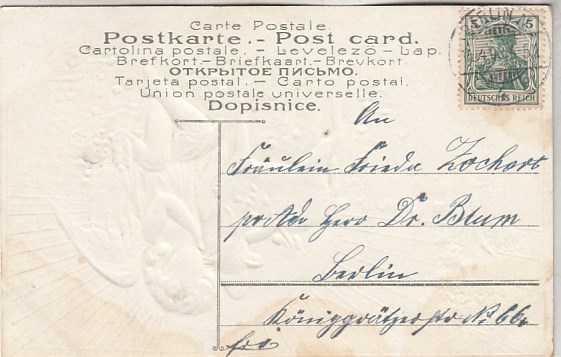 Carte Postale.
Postkarte.- Post card.
Cartolina postale. - Levelező - Lap.
Brefkort.- Briefkaart.- Brevkort
ОТКРЫТОЕ ПИСЬМО.
Tarjeta postal. - Carto postal.
Union postale universelle.
Dopisnice.
5
DEUTSCHES REICH
An
Fräulein Frieda
pr Adr Herr Dr. Blum
Berlin
Königgrätzerstr No 66